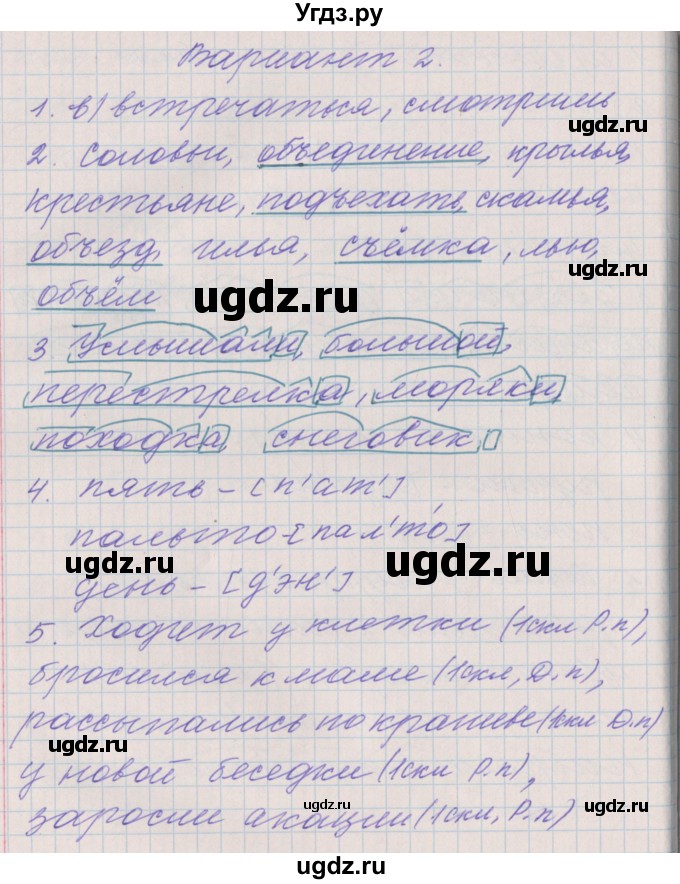 Угдз.ру
Вариант 2.
1. в) встречаться, смотришь
ugdz.ru
2. соловьи, объединение, крылья,
крестьяне, подъехать, скамья,
объезд, илья, съёмка, лью,
ugdz.ru
объём
ugdz.ru
3 Услышали, большой,
перестрелка, моряки
походка, снеговик,
ugdz.ru
4. пять - [п'ат']
пальто - [пал'то]
ugdz.ru
ugdz.ru
день - [д'эн']
5. Ходит у клетки (1скл Р.п),
бросился к маме (1скл, Д.п),
рассыпались по крапиве (1скл Д.п)
ugdz.ru
у новой беседки (1скл Р.п),
ugdz.ru
заросли акации (1скл, Р.п)
ugdz.ru
ugdz.ru